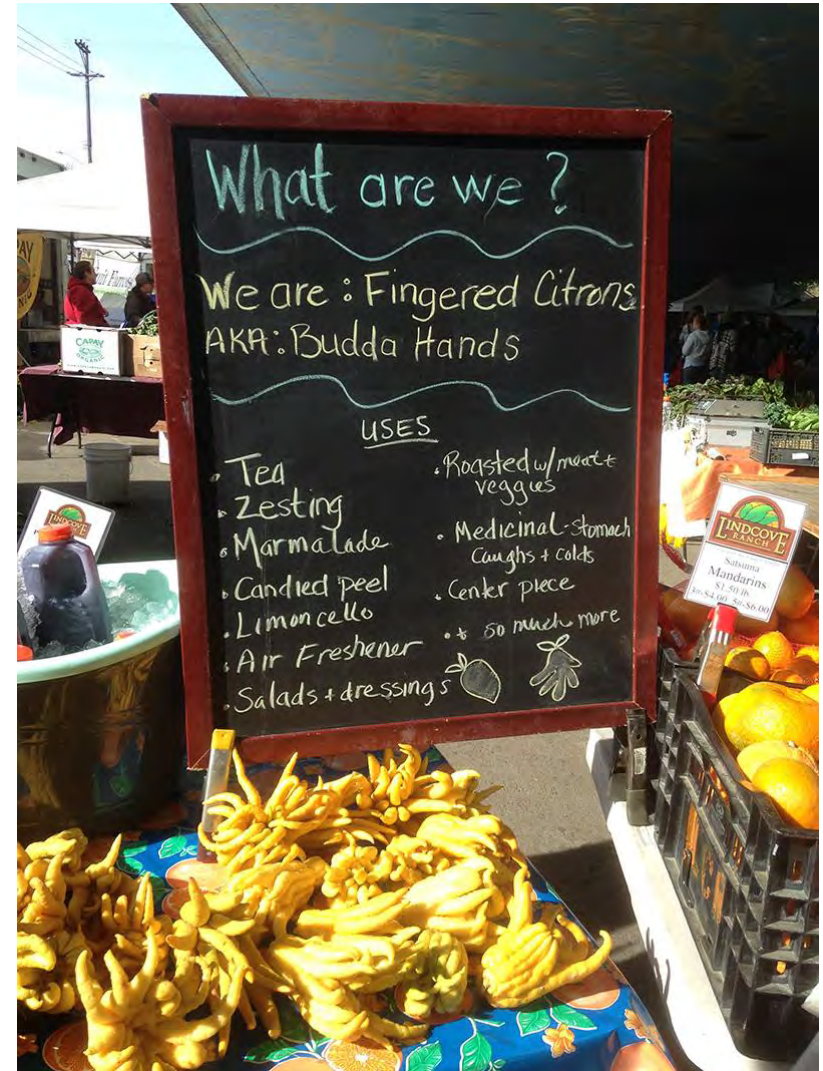 What are we ?
We are : Fingered Citrons
AKA: Budda Hands
USES
• Tea
• Zesting
• Marmalade
• Candied peel
• Limoncello
• Air Freshener
• Salads + dressings
• Roasted w/ meat +
veggies
• Medicinal - stomach
Caughs + colds
• Center piece
• + so much more
CAPAY
ORGANIC
LINDCOVE
RANCH
LINDCOVE
RANCH
Satsuma
Mandarins
$1.50/lb